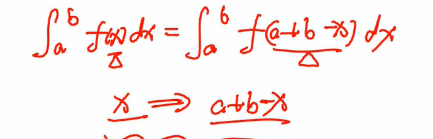 ∫ₐᵇ f(x) dx = ∫ₐᵇ f(a+b-x) dx
x ⇒ a+b-x